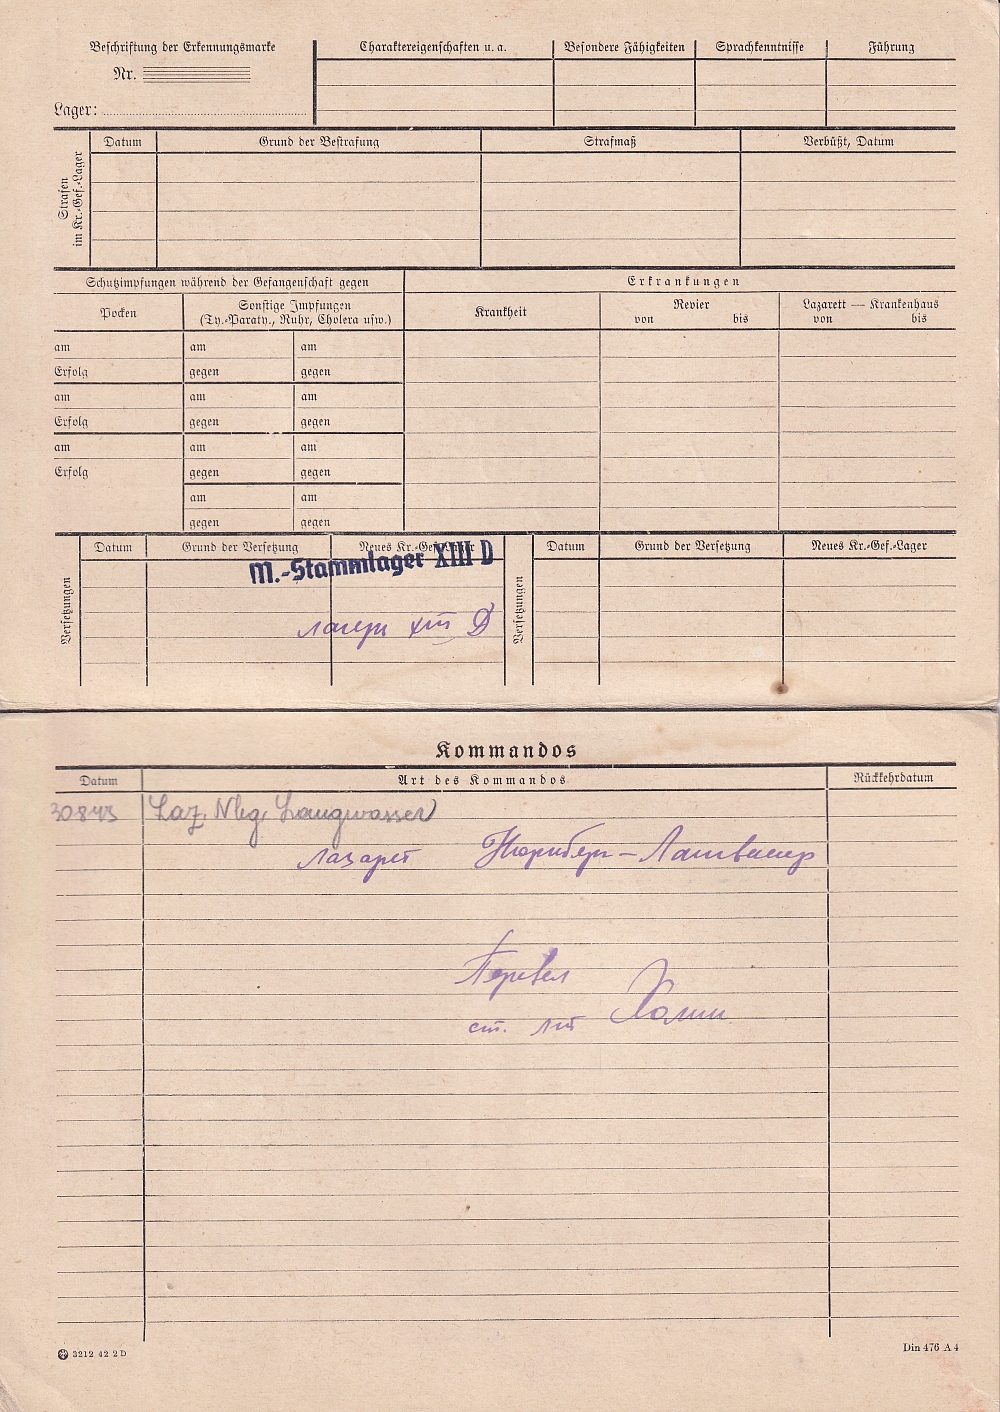 Beschriftung der Erkennungsmarke
Nr.
Lager:
Charaktereigenschaften u. a.
Besondere Fähigkeiten
Sprachkenntnisse
Führung
Strafen
im Kr.-Gef.-Lager
Datum
Grund der Bestrafung
Strafmaß
Verbüßt, Datum
Schutzimpfungen während der Gefangenschaft gegen
Erkrankungen
Pocken
Sonstige Impfungen
(Ty.-Paraty., Ruhr, Cholera usw.)
Krankheit
Revier
von bis
Lazarett — Krankenhaus
von bis
am am am
Erfolg gegen gegen
am am am
Erfolg gegen gegen
am am am
Erfolg gegen gegen
am am
gegen gegen
Versetzungen
Datum
Grund der Versetzung
Neues Kr.-Gef.-Lager
M.-Stammlager XIII D
лагерь XIII D
Versetzungen
Datum
Grund der Versetzung
Neues Kr.-Gef.-Lager
Kommandos
Datum
Art des Kommandos
Rückkehrdatum
30.8.43 Laz. Nbg. Langwasser
Лазарет Нюрнберг – Лангвассер
Перевел
ст. лт
3212 42 2D
Din 476 A 4